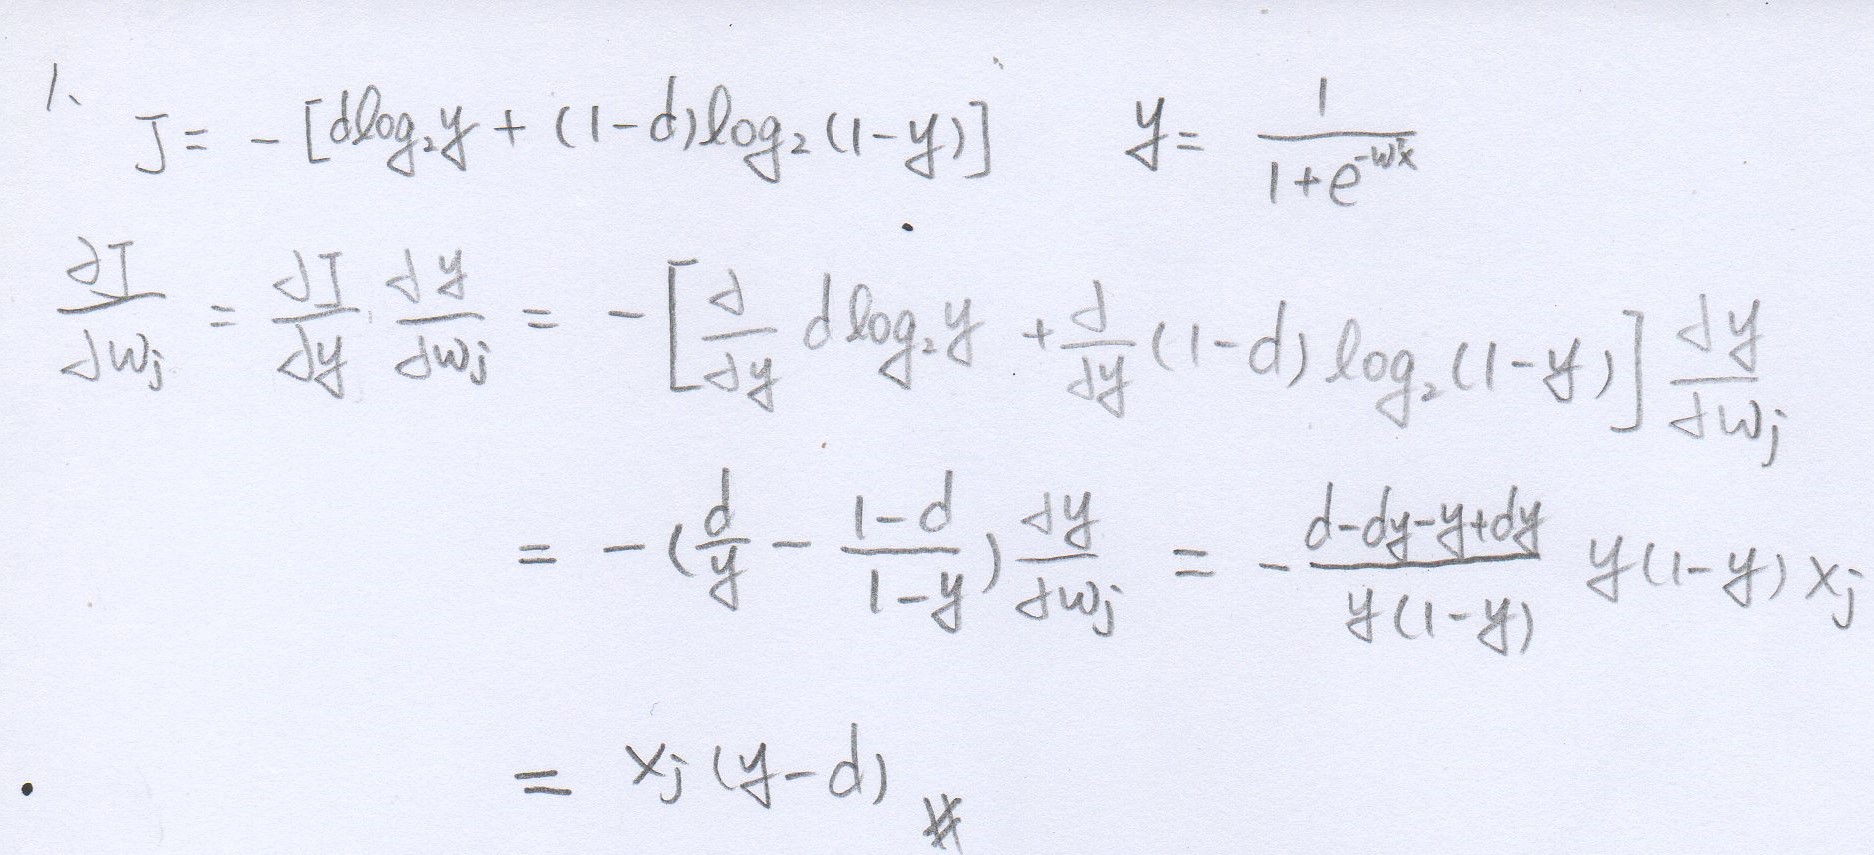 1、
J = - [dlog₂y + (1-d)log₂(1-y)]    y = \frac{1}{1+e^{-w^T x}}
\frac{∂J}{∂w_j} = \frac{∂J}{∂y} · \frac{∂y}{∂w_j} = - [\frac{∂}{∂y} d log₂y + \frac{∂}{∂y} (1-d) log₂(1-y)] \frac{∂y}{∂w_j}
= - (\frac{d}{y} - \frac{1-d}{1-y}) \frac{∂y}{∂w_j} = - \frac{d-dy-y+dy}{y(1-y)} y(1-y) x_j
= x_j (y-d) #